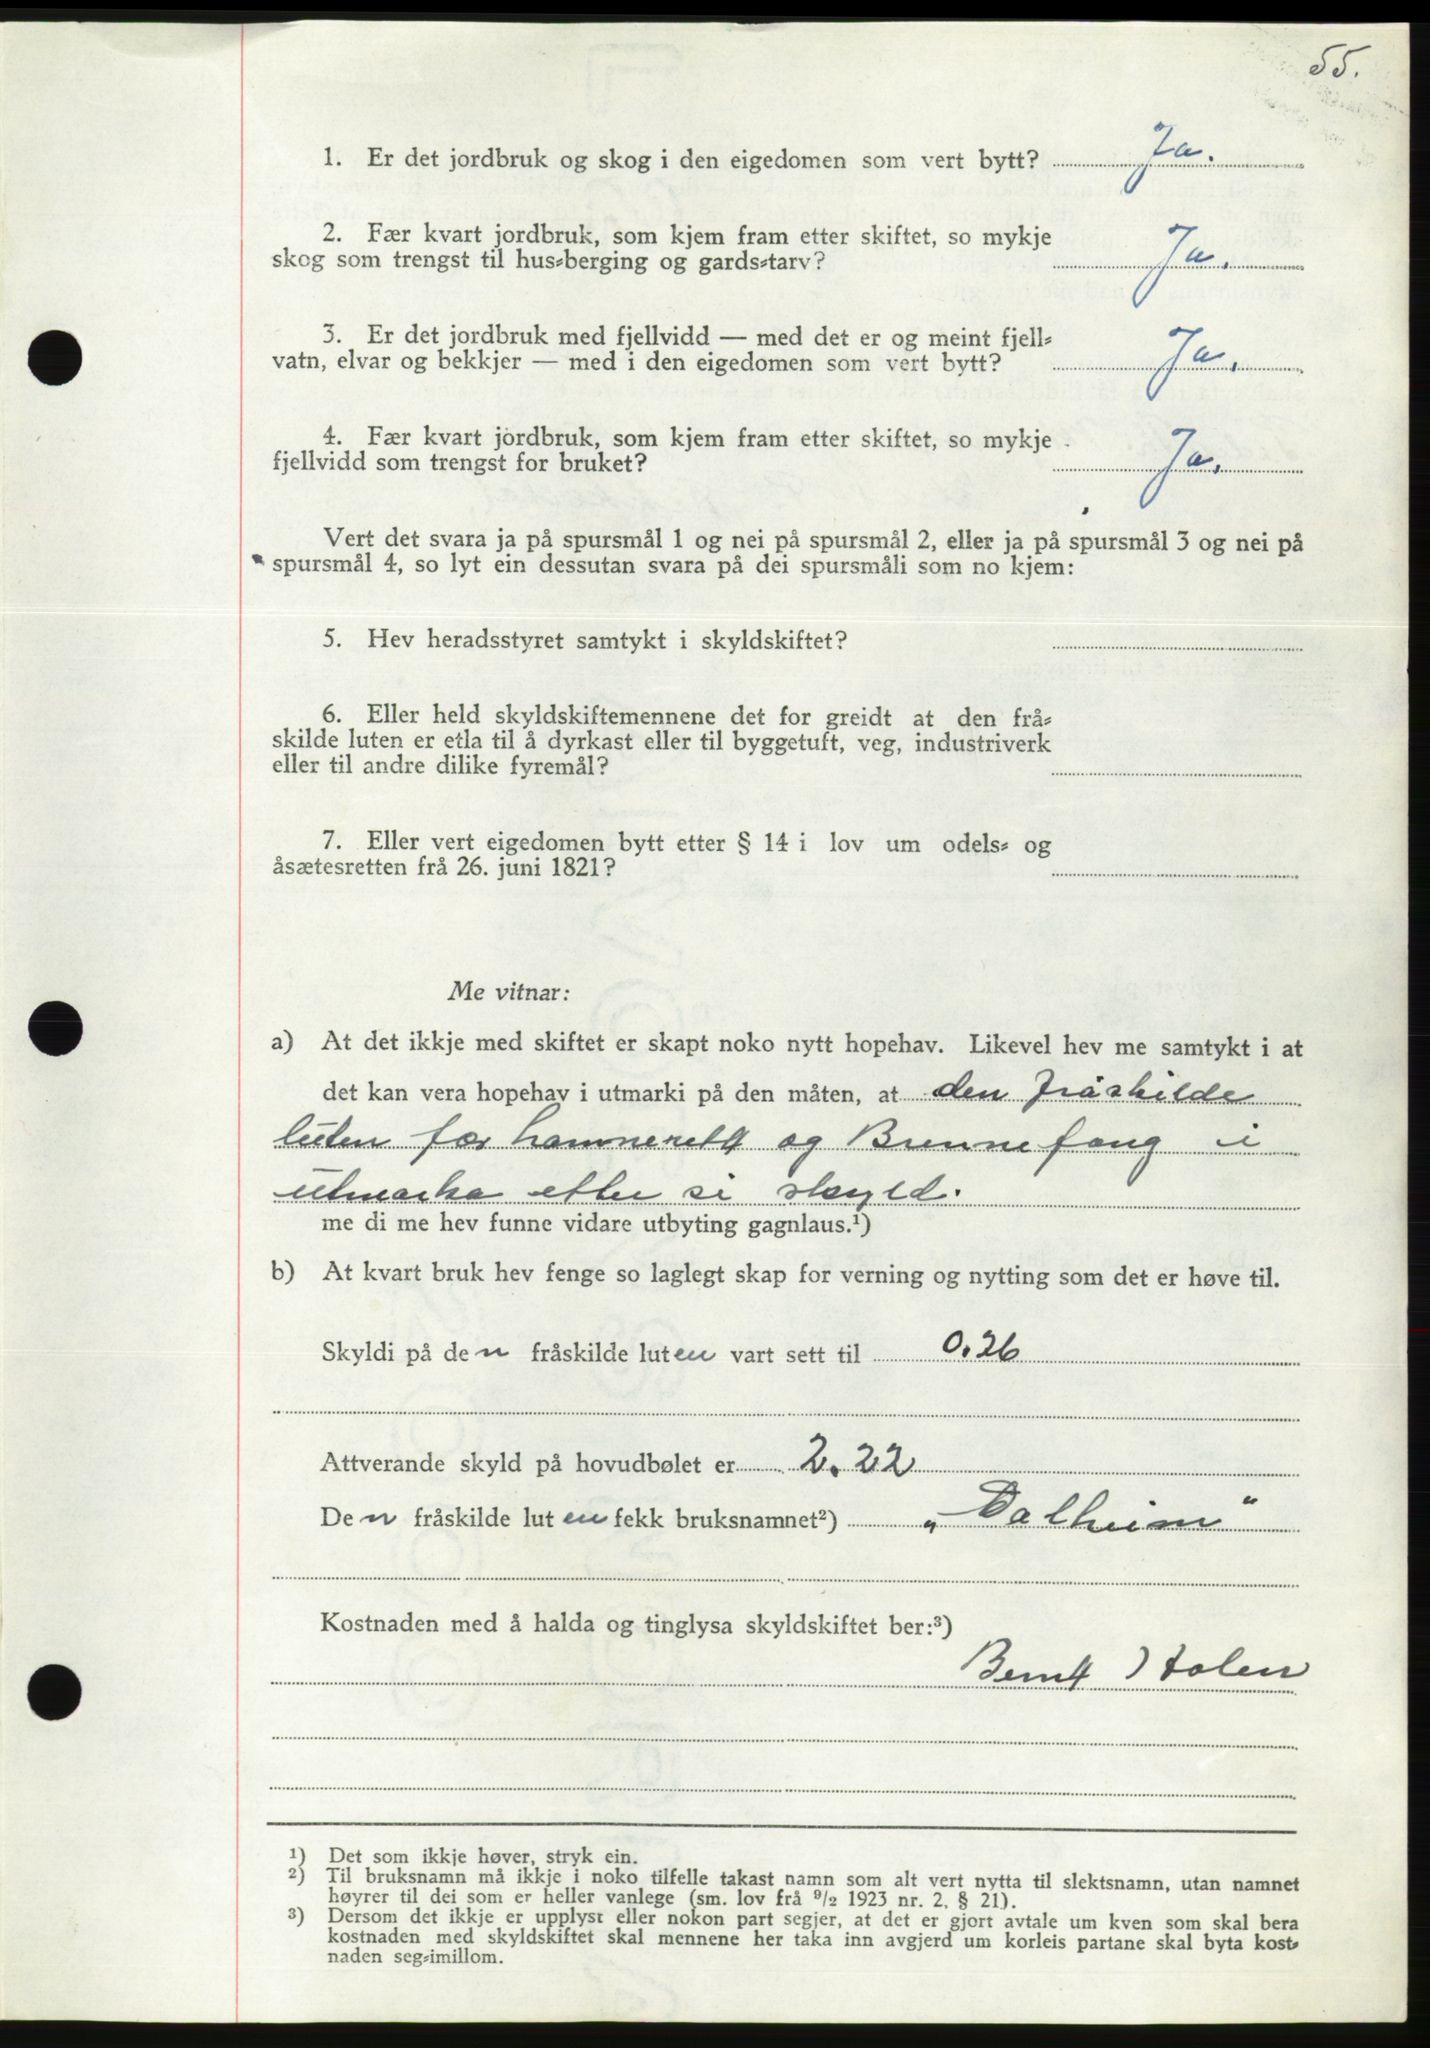 55.
1. Er det jordbruk og skog i den eigedomen som vert bytt? Ja.
2. Fær kvart jordbruk, som kjem fram etter skiftet, so mykje
skog som trengst til hus-berging og gards-tarv? Ja.
3. Er det jordbruk med fjellvidd — med det er og meint fjell-
vatn, elvar og bekkjer — med i den eigedomen som vert bytt? Ja.
4. Fær kvart jordbruk, som kjem fram etter skiftet, so mykje
fjellvidd som trengst for bruket? Ja.
Vert det svara ja på spursmål 1 og nei på spursmål 2, eller ja på spursmål 3 og nei på
spursmål 4, so lyt ein dessutan svara på dei spursmåli som no kjem:
5. Hev heradsstyret samtykt i skyldskiftet?
6. Eller held skyldskiftemennene det for greidt at den frå-
skilde luten er etla til å dyrkast eller til byggetuft, veg, industriverk
eller til andre dilike fyremål?
7. Eller vert eigedomen bytt etter § 14 i lov um odels- og
åsætesretten frå 26. juni 1821?
Me vitnar:
a) At det ikkje med skiftet er skapt noko nytt hopehav. Likevel hev me samtykt i at
det kan vera hopehav i utmarki på den måten, at den fråskilde
luten fær hamnerett og Brennefang i
utmarka etter si skyld.
me di me hev funne vidare utbyting gagnlaus.¹)
b) At kvart bruk hev fenge so laglegt skap for verning og nytting som det er høve til.
Skyldi på den fråskilde luten vart sett til 0.26
Attverande skyld på hovudbølet er 2.22
Den fråskilde luten fekk bruksnamnet²) „Dalheim"
Kostnaden med å halda og tinglysa skyldskiftet ber:³)
Bernt Holen
¹) Det som ikkje høver, stryk ein.
²) Til bruksnamn må ikkje i noko tilfelle takast namn som alt vert nytta til slektsnamn, utan namnet
høyrer til dei som er heller vanlege (sm. lov frå 9/2 1923 nr. 2, § 21).
³) Dersom det ikkje er upplyst eller nokon part segjer, at det er gjort avtale um kven som skal bera
kostnaden med skyldskiftet skal mennene her taka inn avgjerd um korleis partane skal byta kost-
naden seg-imillom.